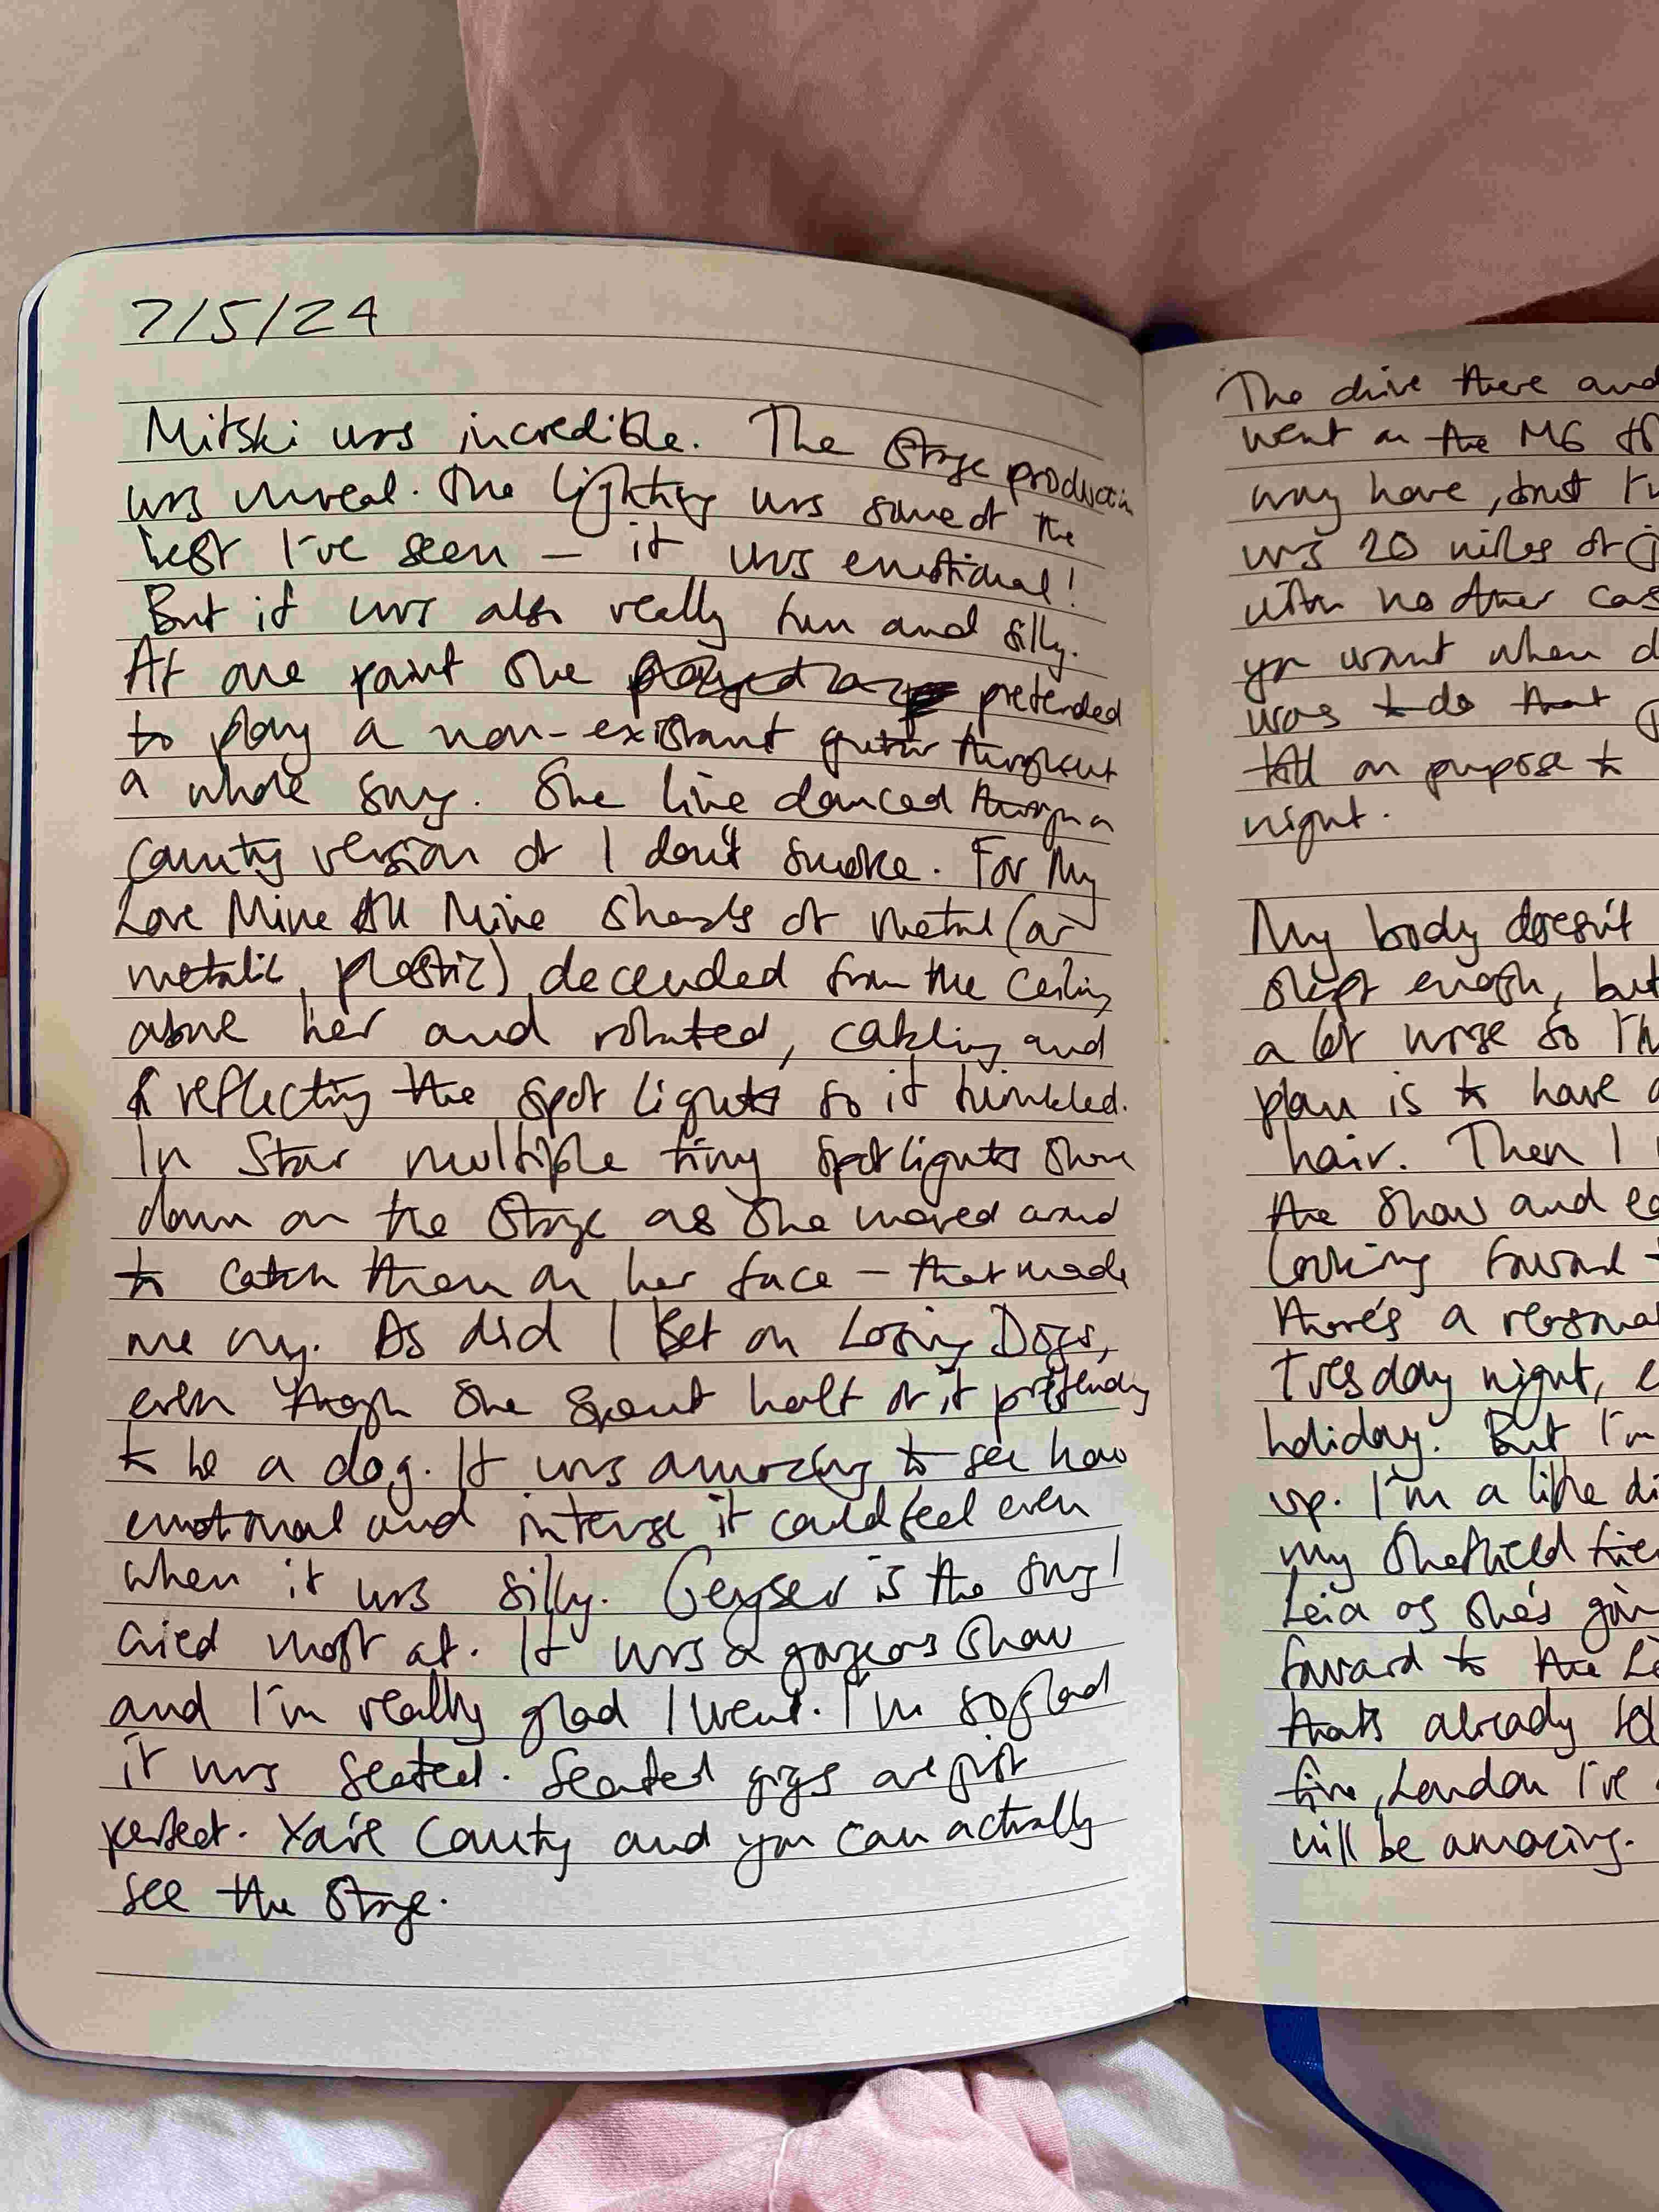 7/5/24
Mitski was incredible. The stage production
was unreal. The lighting was some of the
best I've seen – it was emotional!
But it was also really fun and silly.
At one point she pretended
to play a non-existant guitar throughout
a whole song. She line danced through a
country version of I don't smoke. For My
Love Mine All Mine shards of metal (or
metalic plastic) decended from the ceiling
above her and rotated, and
reflecting the spot lights so it twinkled.
In Star multiple tiny spotlights shone
down on the stage as she moved around
to catch them on her face – that made
me cry. As did I Bet on Losing Dogs,
even though she spent half of it pretending
to be a dog. It was amazing to see how
emotional and intense it could feel even
when it was silly. Geyser is the song I
cried most at. It was a gorgeous show
and I'm really glad I went. I'm so glad
it was seated. Seated gigs are just
perfect. You're comfy and you can actually
see the stage.
The drive there and
went on the M6
way home, but I'v
was 20 miles of
with no other cars
you want when d
was to do that
toll on purpose to
night.
My body doesn't
slept enough, but
a lot worse so I'
plan is to have a
hair. Then I
the show and
looking forward
there's a
Tuesday night, e
holiday. But I'm
up. I'm a little di
my Sheffield frie
Leia as she's goin
forward to the Le
thats already
fine, London I've
will be amazing.